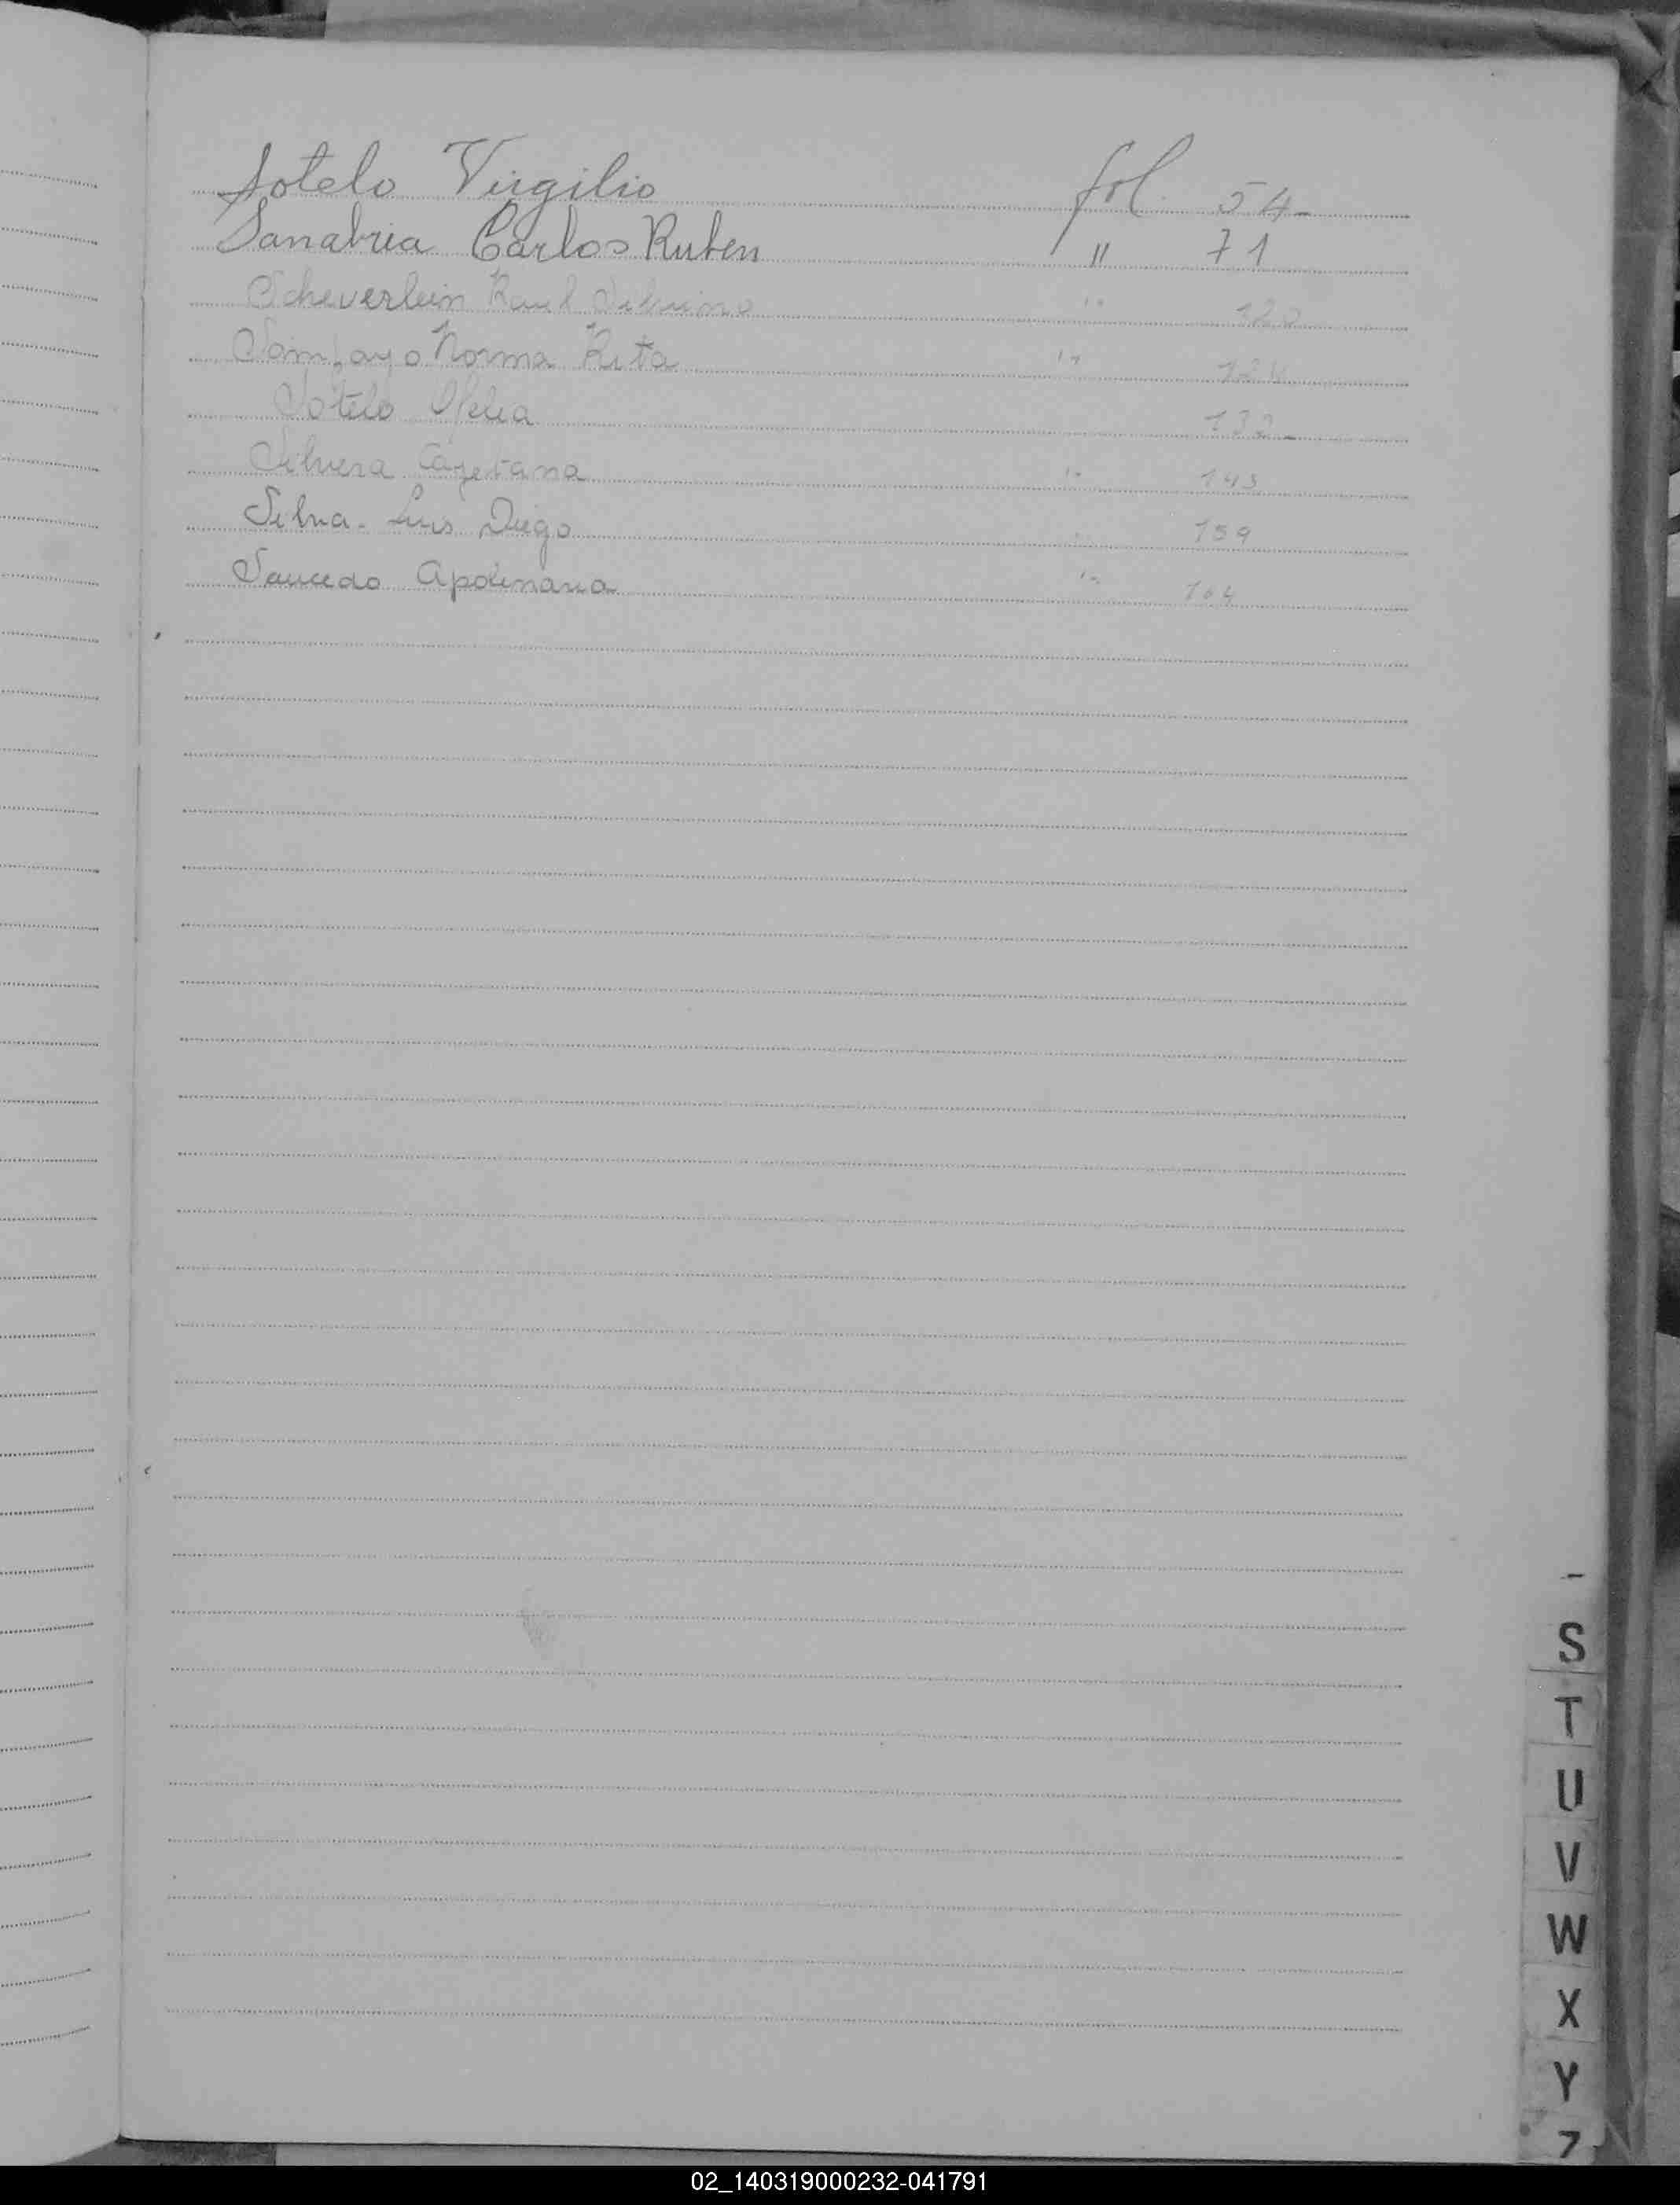 Sotelo Virgilio fol. 54-
Sanabria Carlos Ruben " 71
Scheverlein Raul " 120
Sampayo Norma Rita " 124
Sotelo Ofelia 132-
Silvera Cayetana " 143
Silva- Luis Diego 159
Saucedo Apolinaria " 164
S
T
U
V
W
X
Y
Z
02_140319000232-041791